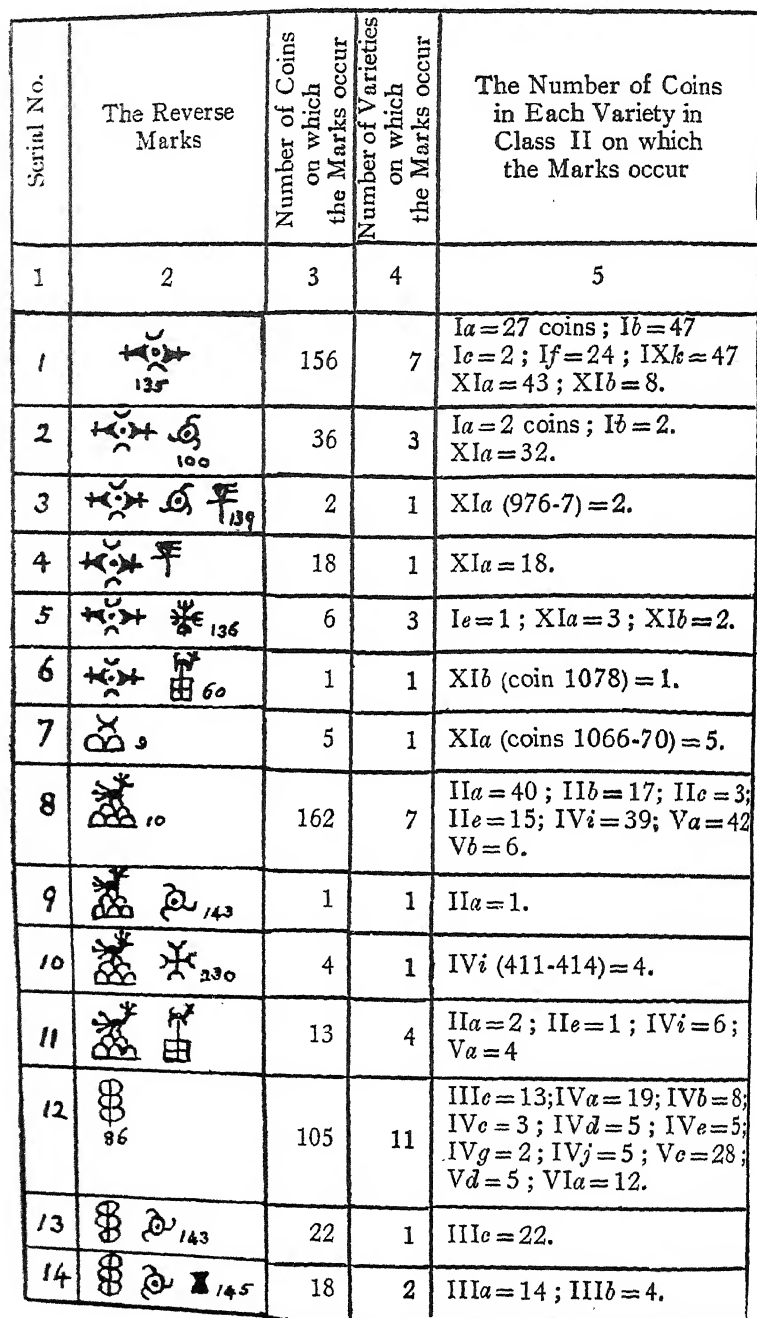 Serial No.
The Reverse
Marks
Number of Coins
on which
the Marks occur
Number of Varieties
on which
the Marks occur
The Number of Coins
in Each Variety in
Class II on which
the Marks occur
1 2 3 4 5
1 135 156 7 Ia=27 coins; Ib=47
Ic=2; If=24; IXk=47
XIa=43; XIb=8.
2 100 36 3 Ia=2 coins; Ib=2.
XIa=32.
3 139 2 1 XIa (976-7)=2.
4 18 1 XIa=18.
5 136 6 3 Ie=1; XIa=3; XIb=2.
6 60 1 1 XIb (coin 1078)=1.
7 9 5 1 XIa (coins 1066-70)=5.
8 10 162 7 IIa=40; IIb=17; IIc=3;
IIe=15; IVi=39; Va=42
Vb=6.
9 143 1 1 IIa=1.
10 230 4 1 IVi (411-414)=4.
11 13 4 IIa=2; IIe=1; IVi=6;
Va=4
12 86 105 11 IIIc=13; IVa=19; IVb=8;
IVc=3; IVd=5; IVe=5;
IVg=2; IVj=5; Vc=28;
Vd=5; VIa=12.
13 143 22 1 IIIc=22.
14 145 18 2 IIIa=14; IIIb=4.